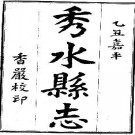 乙丑嘉平
秀水縣志
香嚴校印